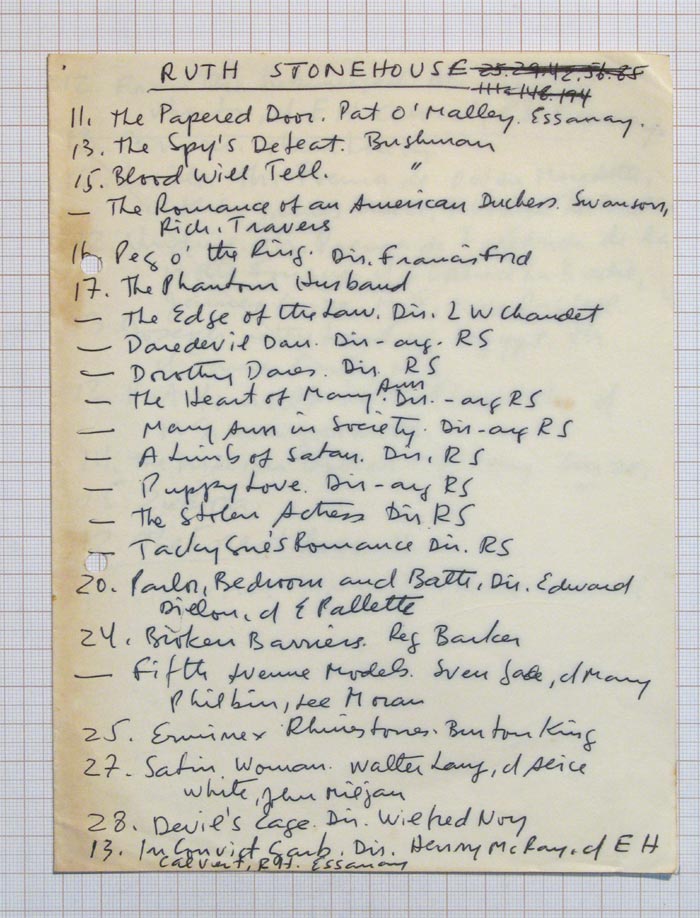 RUTH STONEHOUSE 25.29.42.56.85
111a 146.194
11. The Papered Door. Pat O'Malley. Essanay.
13. The Spy's Defeat. Bushman
15. Blood Will Tell. "
— The Romance of an American Duchess. Swanson,
Rich. Travers
16. Peg o' the Ring. Dir. Francis Ford
17. The Phantom Husband
— The Edge of the Law. Dir. L W Chaudet
— Daredevil Dan. Dir-arg. RS
— Dorothy Dares. Dir. RS
— The Heart of Mary Ann. Dir. - arg RS
— Mary Ann in Society. Dir-arg RS
— A Limb of Satan. Dir. RS
— Puppy Love. Dir-arg RS
— The Stolen Actress Dir RS
— Tacky Sue's Romance Dir. RS
20. Parlor, Bedroom and Bath, Dir. Edward
Dillon, d E Pallette
24. Broken Barriers. Reg Barker
— Fifth Avenue Models. Sven Gade, d Mary
Philbin, Lee Moran
25. Ermine x Rhinestones. Burton King
27. Satin Woman. Walter Lang, d Alice
White, John Miljan
28. Devil's Cage. Dir. Wilfred Noy
13. In Convict Garb. Dir. Henry McRay. d E H
Calvert, Essanay